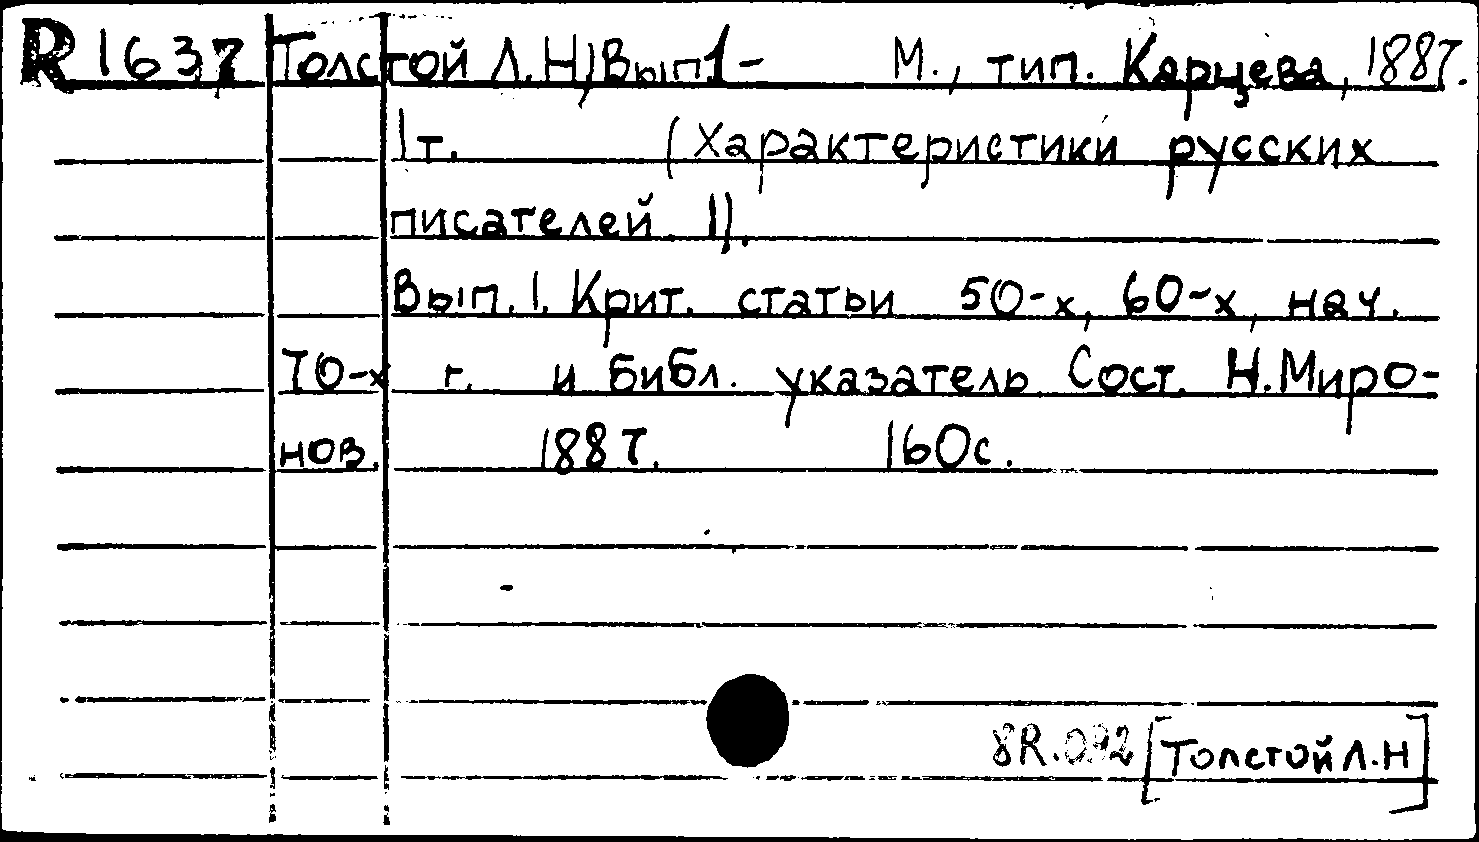 R 1637 Толстой Л.Н) Вып 1- М., тип. Карцева, 1887.
1 т. (Характеристики русских
писателей 1).
Вып. 1. Крит. статьи 50-х, 60-х, нач.
70-х г. и библ. указатель Сост. Н.Миро-
нов. 1887. 160с.
8R.092 [Толстой Л.Н]